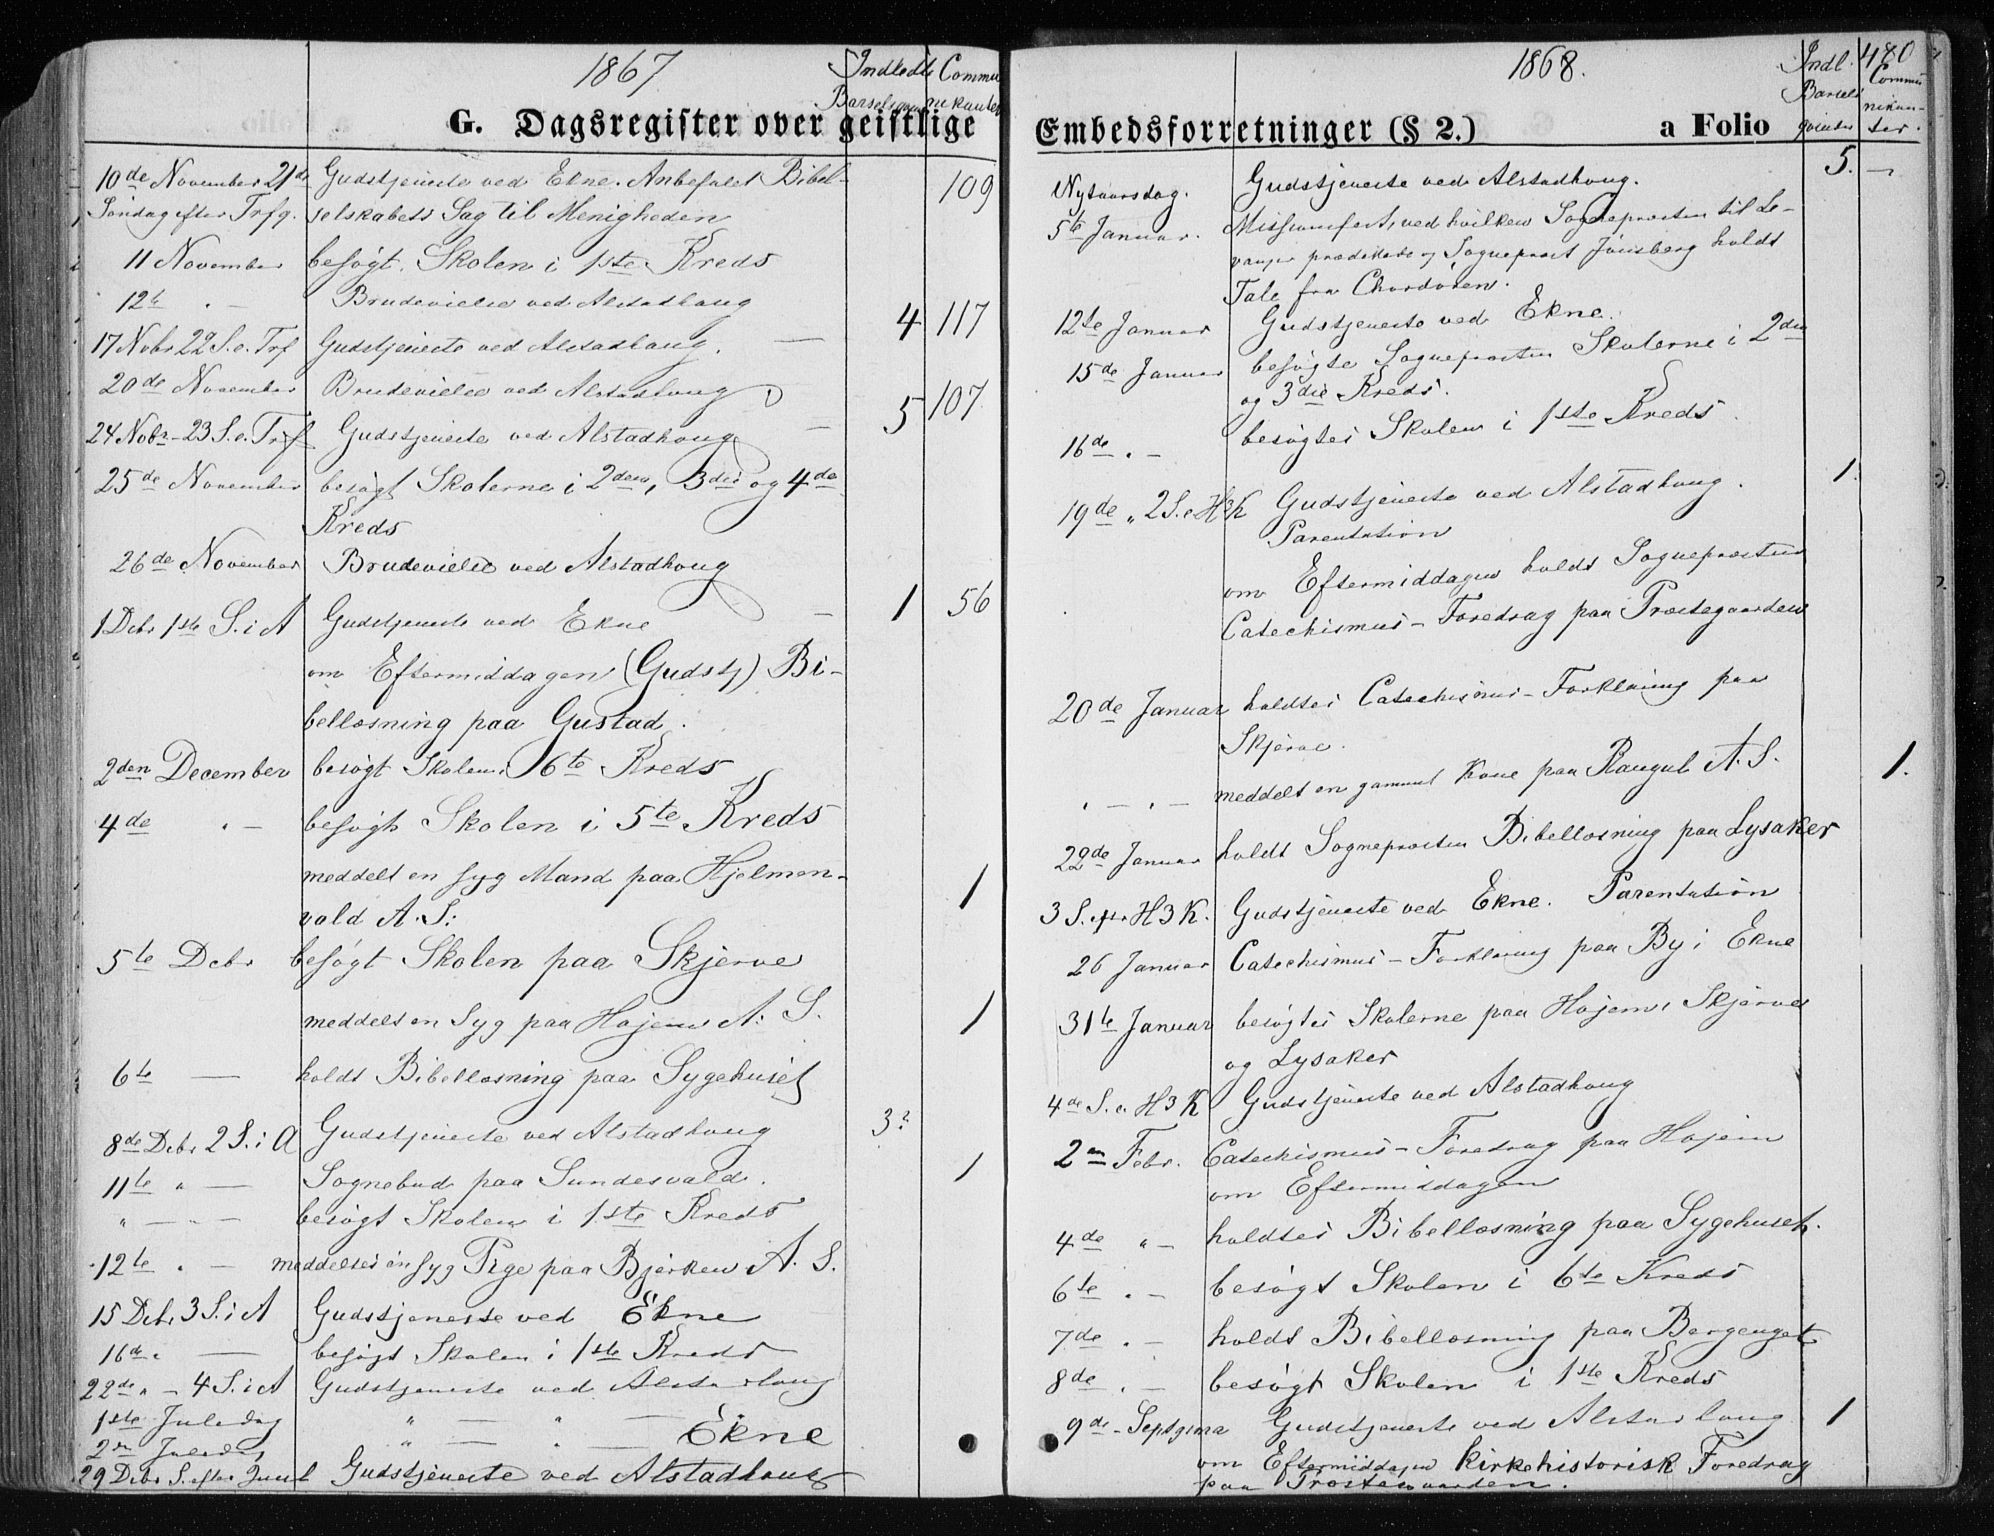 1867
Indledte Commu
Barselqvin nikanter
G. Dagsregister over geistlige
10de November 21de Gudstjeneste ved Ekne. Anbefalet Bibel- 109
Søndag efter Trfg. selskabets Sag til Menigheden
11 November besøgt Skolen i 1ste Kreds
12te " - Brudevielse ved Alstadhoug
17 Nobr 22 S. e. Trf Gudstjeneste ved Alstadhoug. — 4 117
20de November Brudevielse ved Alstadhoug
24 Nobr - 23 S. e. Trf Gudstjeneste ved Alstadhoug — 5 107
25de November besøgt Skolerne i 2den, 3die og 4de
Kreds
26de November Brudevielse ved Alstadhoug
1 Debr 1ste S. i A Gudstjeneste ved Ekne — 1 56
om Eftermiddagen (Gudstj) Bi-
bellæsning paa Gustad.
2den December besøgt Skolen i 6te Kreds
4de " - besøgt Skolen i 5te Kreds
meddelt en syg Mand paa Hjelmen- 1
vald A. S.
5te Debr besøgt Skolen paa Skjerve
meddelt en Syg paa Hojem A. S. 1
6te — holdt Bibellæsning paa Sygehuset
8de Debr 2 S. i A Gudstjeneste ved Alstadhoug 3
11te " — Sognebud paa Sundesvald. 1
" — " — besøgt Skolen i 1ste Kreds
12te " — meddeltes en syg Pige paa Bjerken A. S.
15 Debr 3 S. i A Gudstjeneste ved Ekne
16de " — besøgt Skolen i 1ste Kreds
22de " - 4 S. i A Gudstjeneste ved Alstadhoug
1ste Juledag " — " —
2den Juledag " — " — Ekne
29 Debr S. efter Juul Gudstjeneste ved Alstadhoug
1868.
480
Indl. Commu
Barsels nikan-
qvinder ter.
Embedsforretninger (§ 2.) a Folio
Nytaarsdag. Gudstjeneste ved Alstadhoug. 5. —
5te Januar. Missionsfest, ved hvilken Sogneprosten til Le-
vanger prædikede og Sogneprest Jönsberg holdt
Tale fra Chordören.
12te Januar Gudstjeneste ved Ekne.
15de Januar besøgte Sogneprosten Skolerne i 2den
og 3die Kreds.
16de " - besøgtes Skolen i 1ste Kreds.
19de " 2 S. e H3K Gudstjeneste ved Alstadhoug. 1.
Parentation
om Eftermiddagen holdt Sogneprosten
Catechismus-Foredrag paa Præstegaarden
20de Januar holdtes Catechismus-Forklaring paa
Skjerve.
" — " — meddelt en gammel Kone paa Raugul A. S. 1.
22de Januar holdt Sogneprosten Bibellæsning paa Lysaker
3 S. efter H3K. Gudstjeneste ved Ekne. Parentation
26 Januar Catechismus-Forklaring paa By i Ekne
31te Januar besøgtes Skolerne paa Hojem, Skjerve
og Lysaker
4de S. e. H3K Gudstjeneste ved Alstadhoug
2en Febr. Catechismus-Foredrag paa Hojem
om Eftermiddagen
4de " - holdtes Bibellæsning paa Sygehuset.
6te " - besøgt Skolen i 6te Kreds
7de " — holdt Bibellæsning paa Bergenget
8de " — besøgt Skolen i 1ste Kreds
9de - Septgsma Gudstjeneste ved Alstadhoug 1
om Eftermiddagen kirkehistorisk Foredrag
paa Præstegaarden.